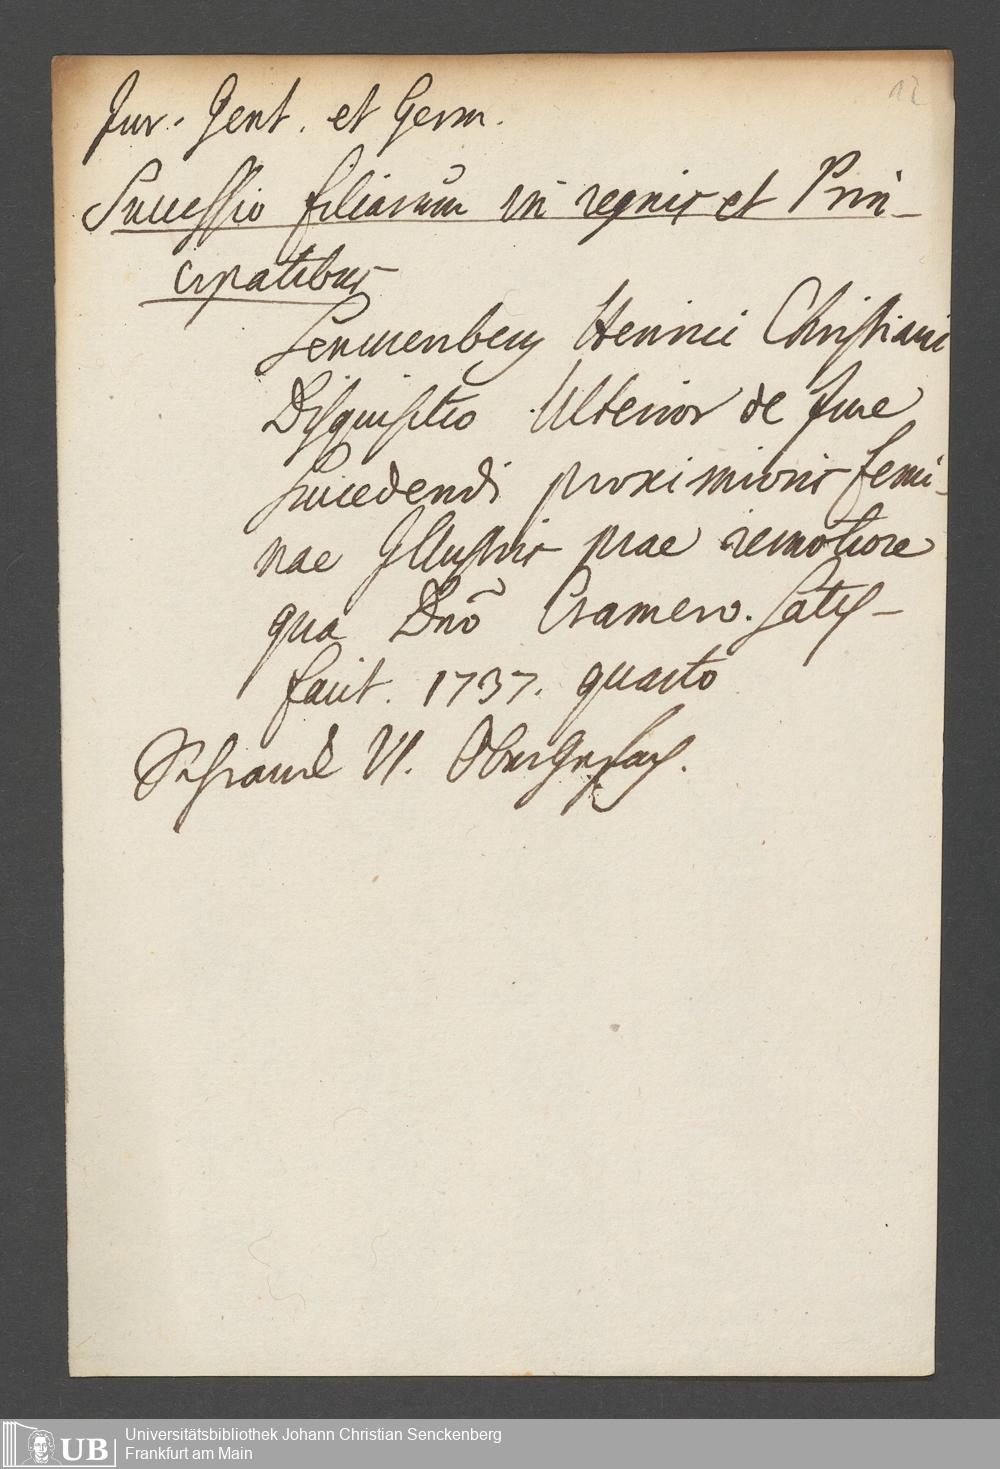 12
Jur. Gent. et Germ.
Successio filiarum in regnis et Prin-
cipatibus
Senckenberg Henrici Christiani
Disquisitio Ulterior de Jure
Succedendi proximioris femi-
nae Illustris prae remotiore
qua Dnō Cramero. Satis-
facit. 1737. quarto
Schranck VI. Obergefach.
UB
Universitätsbibliothek Johann Christian Senckenberg
Frankfurt am Main